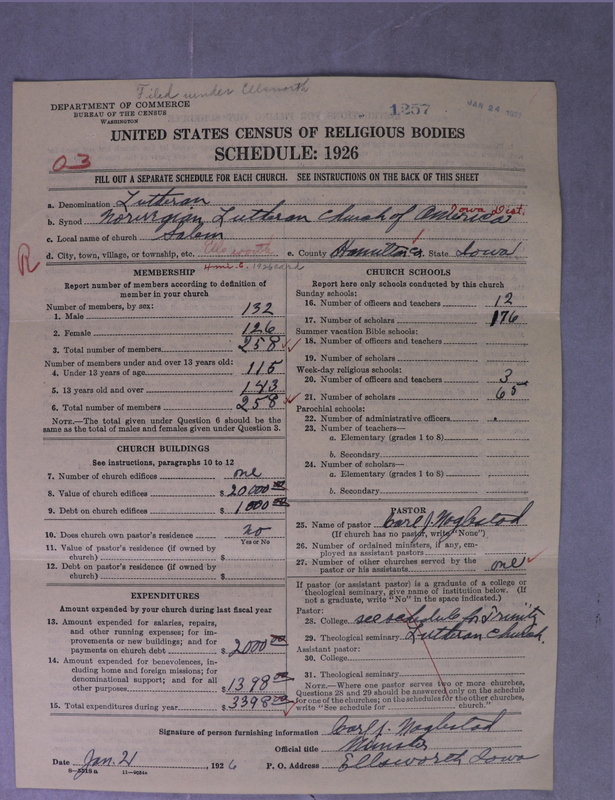 Filed under Ellsworth
DEPARTMENT OF COMMERCE
BUREAU OF THE CENSUS
WASHINGTON
1257
JAN 24
UNITED STATES CENSUS OF RELIGIOUS BODIES
SCHEDULE: 1926
03
FILL OUT A SEPARATE SCHEDULE FOR EACH CHURCH. SEE INSTRUCTIONS ON THE BACK OF THIS SHEET
a. Denomination Lutheran
b. Synod Norwegian Lutheran Church of America Iowa Dist.
c. Local name of church Salem
d. City, town, village, or township, etc. Ellsworth e. County Hamilton Co. State Iowa
R
MEMBERSHIP
Report number of members according to definition of
member in your church
Number of members, by sex:
1. Male 132
2. Female 126
3. Total number of members 258
Number of members under and over 13 years old:
4. Under 13 years of age 115
5. 13 years old and over 143
6. Total number of members 258
NOTE.—The total given under Question 6 should be the
same as the total of males and females given under Question 3.
CHURCH BUILDINGS
See instructions, paragraphs 10 to 12
7. Number of church edifices one
8. Value of church edifices $ 20000 00
9. Debt on church edifices $ 1000 00
10. Does church own pastor's residence No
Yes or No
11. Value of pastor's residence (if owned by
church) $
12. Debt on pastor's residence (if owned by
church) $
EXPENDITURES
Amount expended by your church during last fiscal year
13. Amount expended for salaries, repairs,
and other running expenses; for im-
provements or new buildings; and for
payments on church debt $ 2000 00
14. Amount expended for benevolences, in-
cluding home and foreign missions; for
denominational support; and for all
other purposes $ 1398 00
15. Total expenditures during year $ 3398 00
CHURCH SCHOOLS
Report here only schools conducted by this church
Sunday schools:
16. Number of officers and teachers 12
17. Number of scholars 176
Summer vacation Bible schools:
18. Number of officers and teachers
19. Number of scholars
Week-day religious schools:
20. Number of officers and teachers 3
21. Number of scholars 65
Parochial schools:
22. Number of administrative officers
23. Number of teachers—
a. Elementary (grades 1 to 8)
b. Secondary
24. Number of scholars—
a. Elementary (grades 1 to 8)
b. Secondary
PASTOR
25. Name of pastor Carl J. Noglestad
(If church has no pastor, write "None")
26. Number of ordained ministers, if any, em-
ployed as assistant pastors
27. Number of other churches served by the
pastor or his assistants one
If pastor (or assistant pastor) is a graduate of a college or
theological seminary, give name of institution below. (If
not a graduate, write "No" in the space indicated.)
Pastor:
28. College see schedule for Trinity
29. Theological seminary Lutheran Church.
Assistant pastor:
30. College
31. Theological seminary
NOTE.—Where one pastor serves two or more churches,
Questions 28 and 29 should be answered only on the schedule
for one of the churches; on the schedules for the other churches,
write "See schedule for church."
Signature of person furnishing information Carl J. Noglestad
Official title Minister
Date Jan. 21, 1926 P. O. Address Ellsworth Iowa